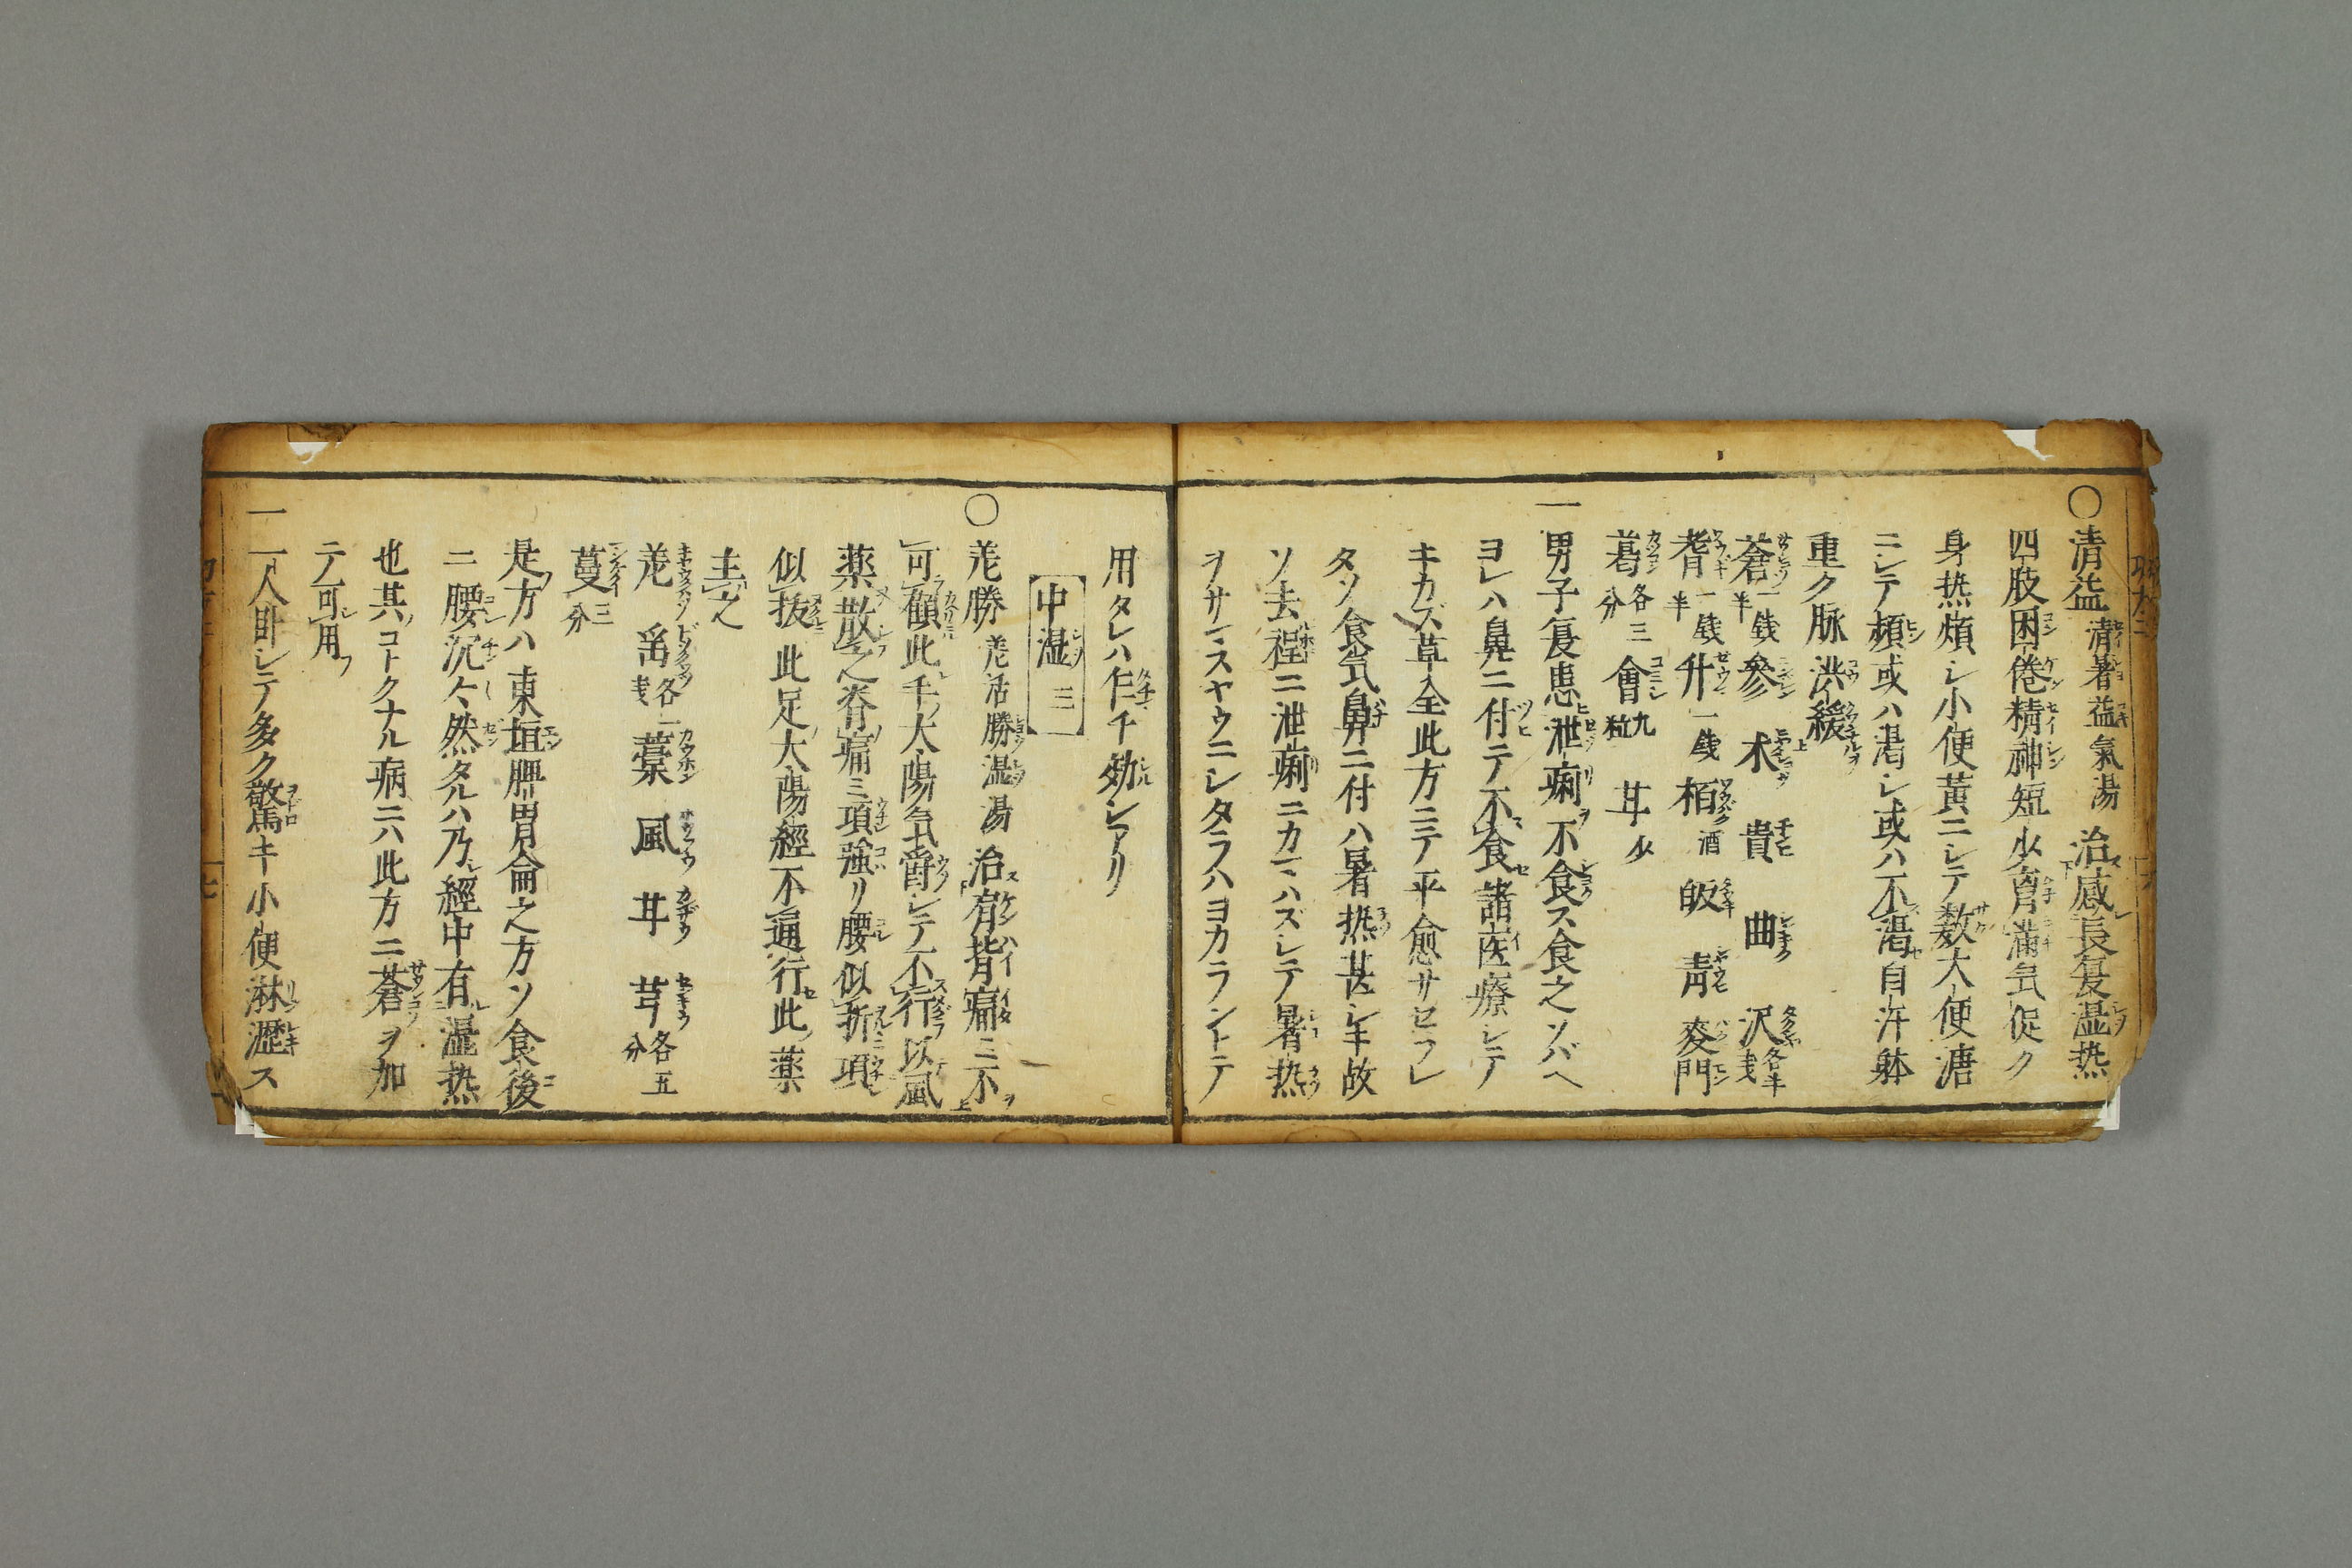 ○清益 清暑益氣湯 治感長夏湿热
四肢困倦精神短少胷滿気促ク
身热煩シ小便黄ニシテ数大便溏
ニシテ頻或ハ渇シ或ハ不渇自汗躰
重ク脉洪緩
蒼一戔半 参 术 貴 曲 沢各半戔
耆一戔半 升一戔 栢酒 皈 青 麥門
葛各三分 會九粒 甘少
一男子夏患泄痢不食ス食之ソバヘ
ヨレハ鼻ニ付テ不食諸医療シテ
キカズ草全此方ニテ平愈サセフ
タソ食気鼻ニ付ハ暑热甚シキ故
ソ去程ニ泄痢ニカマハズシテ暑热
ヲサマスヤウニシタラハヨカラントテ
用タレハ仁千効シアリ
中湿 三
○羗勝 羗活勝湿湯 治肩背痛ミ不
可顧此手大陽気欝シテ不行以風
薬散之脊痛ミ項強リ腰似折項
似抜此足大陽經不通行此薬
主之
羗 各一戔 藁 風 甘 芎各五分
蔓三分
是方ハ東垣脾胃侖之方ソ食後
ニ腰沉々然タルハ乃經中有湿热
也其コトクナル病ニハ此方ニ蒼ヲ加
テ可用
一一人卧シテ多ク驚キ小便淋瀝ス